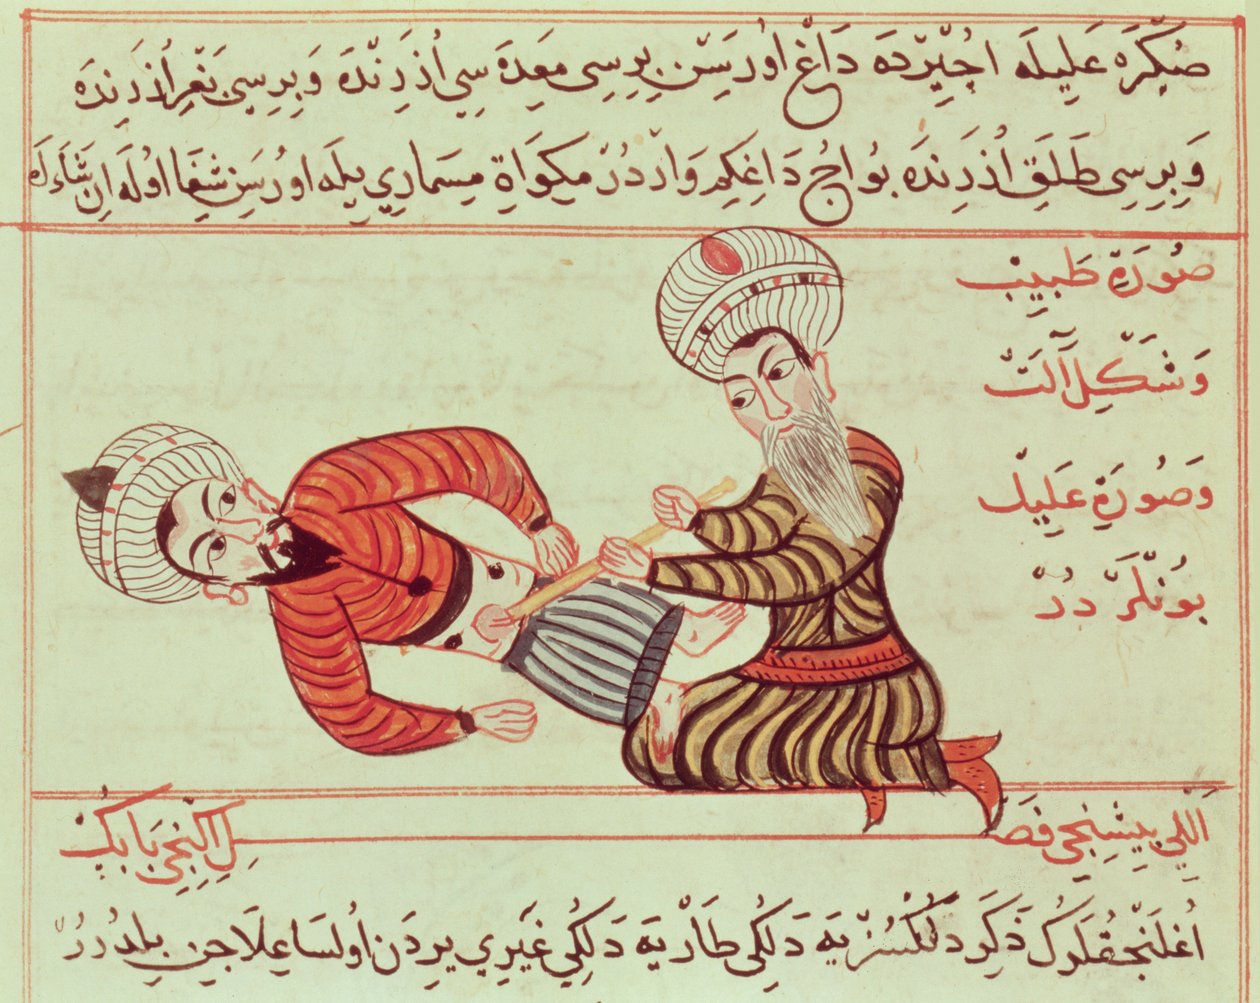 صُكْرَه عَلِيلَه اجُيّرْدَه دَاغْ اُورَسِنْ بِرِسِي مَعِدَه سِي اُذرِنْدَه وَبِرِسِي بَغْرِ اُذرِنْدَه
وَبِرِسِي طَلَقِ اُذرِنْدَه بُو اوُجْ دَاغِكِمِ وَاردُرْ مِكوَاةِ مِسمَارِي يِلَه اورُسَنْ شِفَا اوُلَه اِن شَاءَ
صُورَةِ طَبِيبْ
وَشَكْلِ آلَتْ
وَصُورَةِ عَلِيلْ
بُونْلَرْ دُرْ
اَللِي بِيشِنْجِي فَصلِ اكِنْجِي بَابُكْ
اُغلَنْجُقلَرُكْ ذَكَرِ دلكسُز يَه دَلِكِي طَارْ يَه دَلِكِي غَيرِي يِردَن اوُلسَا عِلَاجِن بِلدُرُرْ